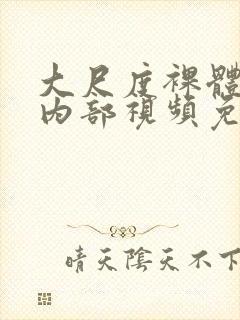 大尺度裸體
內部視頻免
晴天陰天不下